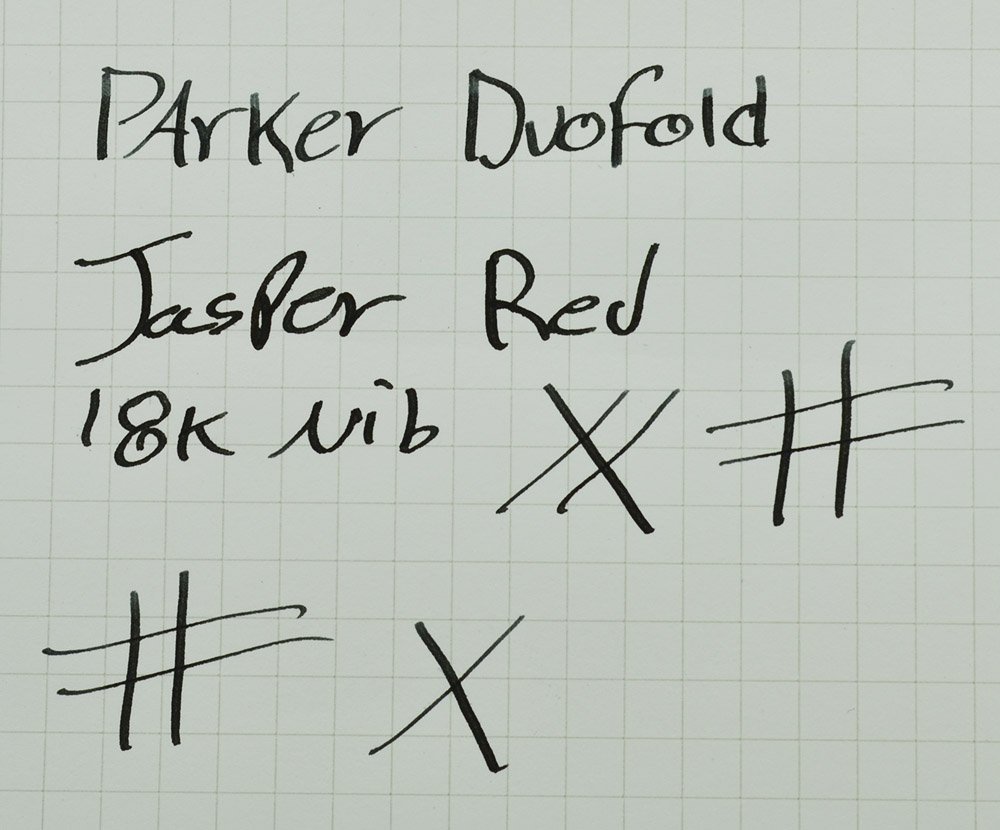 Parker Duofold
Jasper Red
18K Nib X #
# X